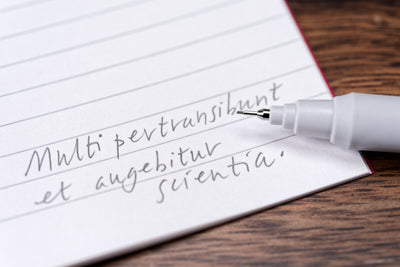 Multi pertransibunt
et augebitur
scientia.